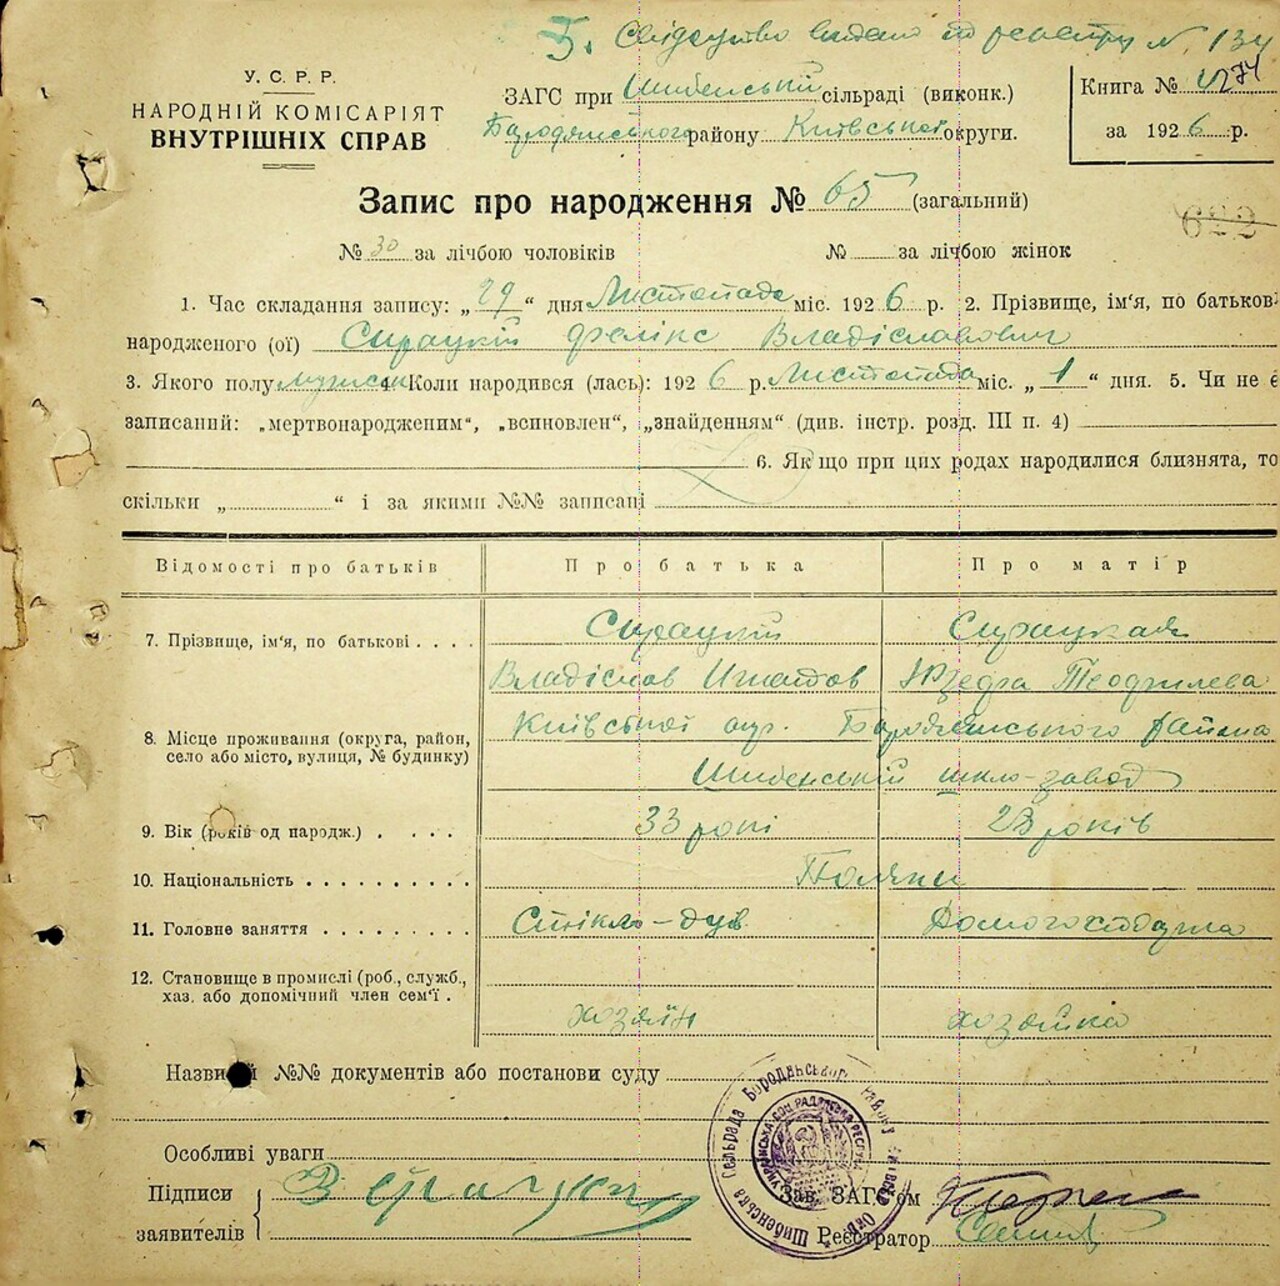 Свідоцтво видано по реестру № 134
У. С. Р. Р.
НАРОДНІЙ КОМІСАРІЯТ
ВНУТРІШНІХ СПРАВ
ЗАГС при Шибенській сільраді (виконк.)
Бородянського району Київської округи.
Книга №
за 1926 р.
274
Запис про народження № 65 (загальний)
622
№ 30 за лічбою чоловіків № за лічбою жінок
1. Час складання запису: „29“ дня Листопада міс. 1926 р. 2. Прізвище, ім'я, по батьков
народженого (ої) Сирацкій Фелікс Владіславович
3. Якого полу мужиск 4. Коли народився (лась): 1926 р. Листопада міс. „1“ дня. 5. Чи не є
записаний: „мертвонародженим“, „всиновлен“, „знайденням“ (див. інстр. розд. III п. 4)
6. Як що при цих родах народилися близнята, то
скільки „ “ і за якими №№ записані
Відомості про батьків Про батька Про матір
7. Прізвище, ім'я, по батькові Сирацкій Сирацкая
Владіслав Игнатов Теофилева
8. Місце проживання (округа, район, село або місто, вулиця, № будинку) Київської окр. Бородянського района
Шибенській шкло-завод
9. Вік (років од народж.) 33 рокі 28 років
10. Національність Поляки
11. Головне заняття Стікло-дув Домогосподарка
12. Становище в промислі (роб., служб., хаз. або допомічний член сем'ї. хозяїн хозяйка
Назви й №№ документів або постанови суду
Особливі уваги
Підписи
заявителів
Зав. ЗАГС'ом
Реєстратор
Шибенська Сельрада Бородянського району Київської Окр.
УКРАЇНСЬКА СОЦ. РАДЯНСЬКА РЕСПУБ